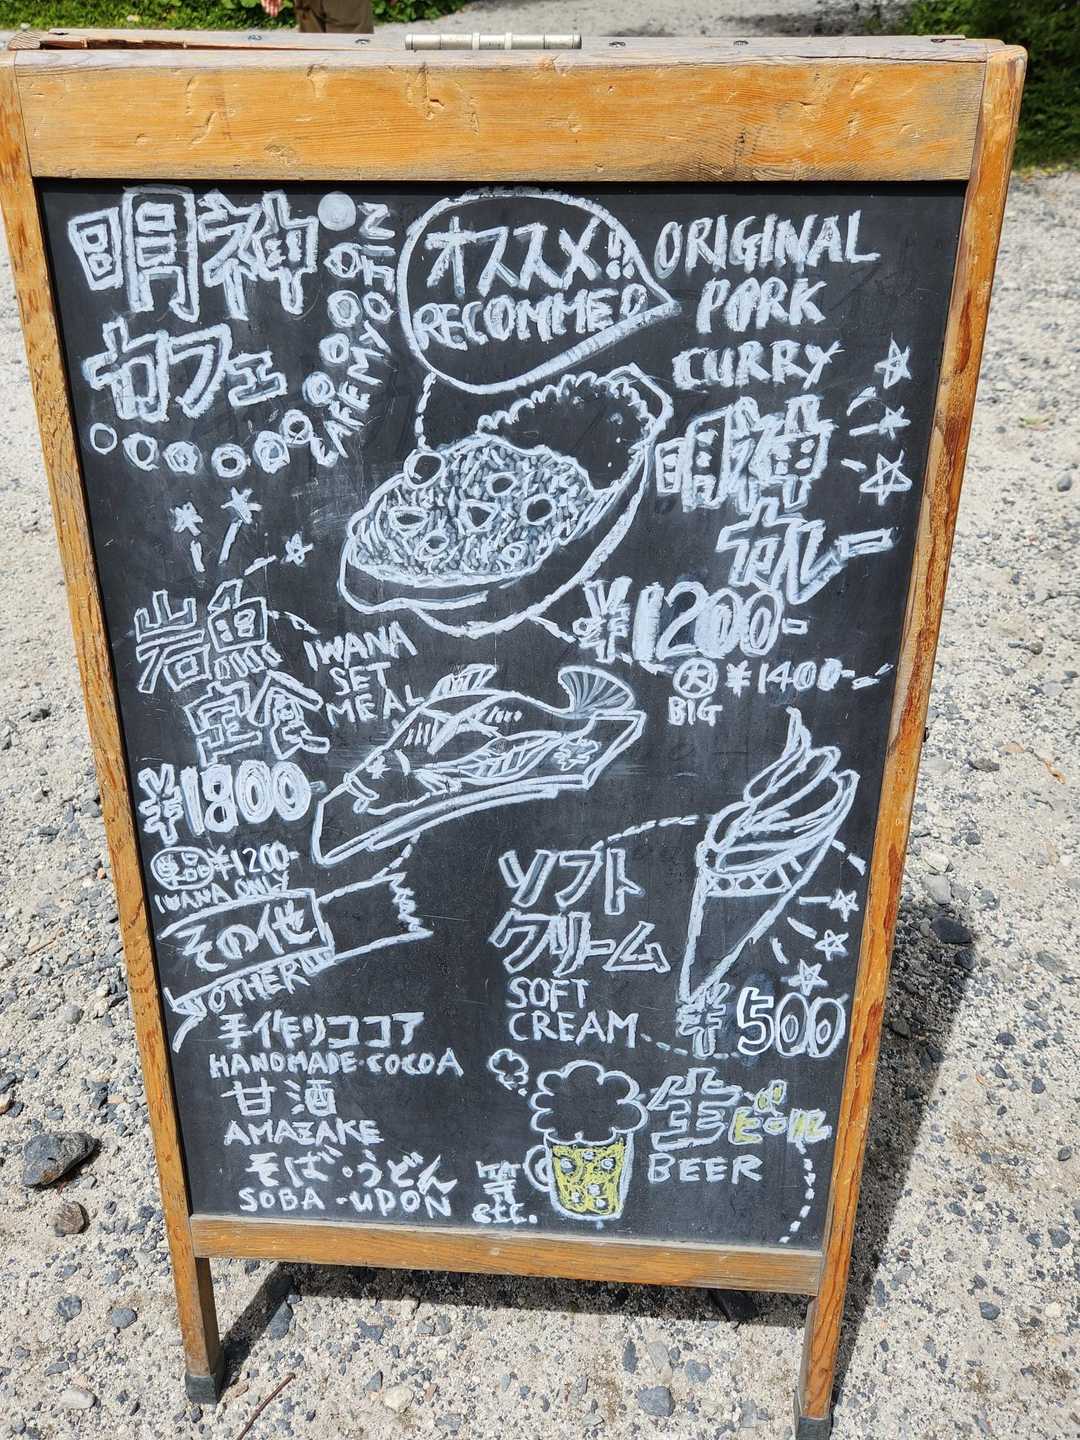 明神
カフェ
CAFE MYOJIN
オススメ!!
RECOMMED
ORIGINAL
PORK
CURRY
カレー
¥1200-
大 ¥1400-
BIG
岩魚
定食
IWANA
SET
MEAL
¥1800
単品 ¥1200-
IWANA ONLY
その他
OTHER
手作りココア
HANDMADE・COCOA
甘酒
AMAZAKE
そば・うどん
SOBA・UDON
等
etc.
ソフト
クリーム
SOFT
CREAM
¥500
生ビール
BEER